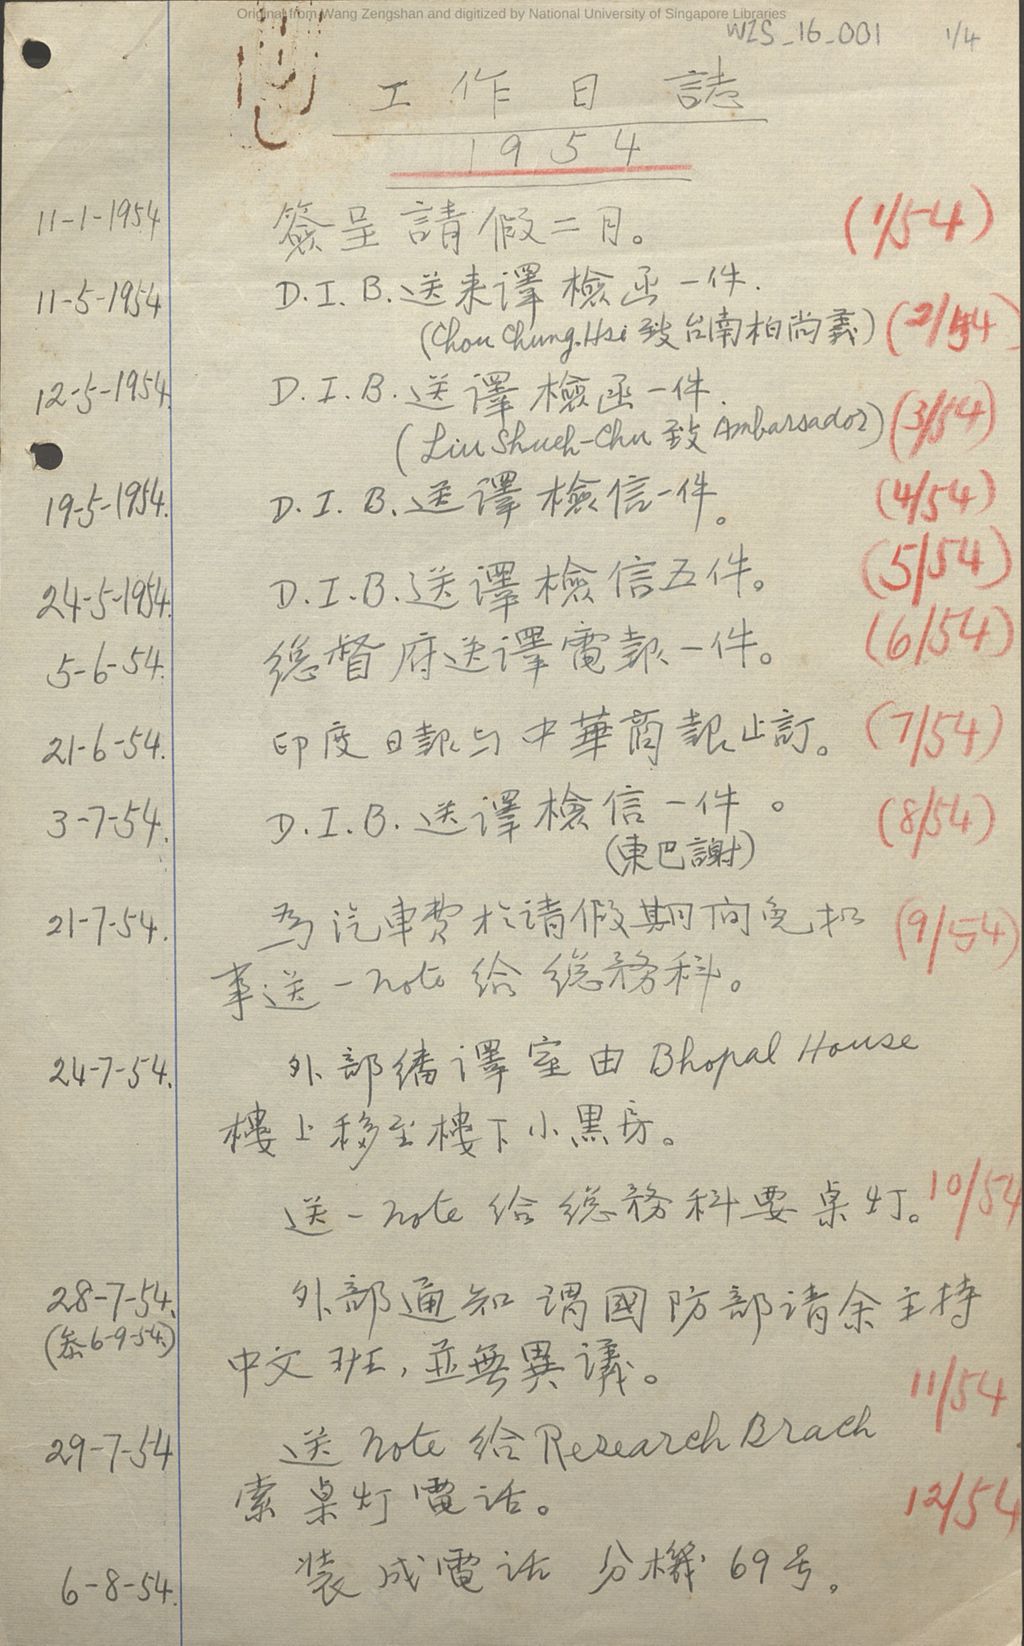 Original from Wang Zengshan and digitized by National University of Singapore Libraries
WZS_16_001 1/4
工作日誌
1954
11-1-1954 簽呈請假二月。 (1/54)
11-5-1954 D.I.B.送来譯檢函一件.
(Chou Chung.Hsi 致台南柏尚義) (2/54)
12-5-1954. D.I.B.送譯檢函一件.
(Liu Shueh-Chu 致 Ambassador) (3/54)
19-5-1954. D.I.B.送譯檢信一件。 (4/54)
24-5-1954. D.I.B.送譯檢信五件。 (5/54)
5-6-54. 總督府送譯電報一件。 (6/54)
21-6-54. 印度日報与中華商報止訂。 (7/54)
3-7-54. D.I.B.送譯檢信一件。 (8/54)
(東巴謝)
21-7-54. 為汽車費於請假期间免扣 (9/54)
事送一note給總務科。
24-7-54. 外部繙譯室由Bhopal House
樓上移至樓下小黒房。
送一note給總務科要桌灯。 10/54
28-7-54. 外部通知謂國防部请余主持
(叅6-9-54) 中文班,並無異議。 11/54
29-7-54 送note給Research Brach
索桌灯電话。 12/54
6-8-54. 装成電话 分機69号。